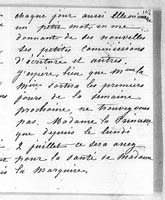 chaque jour aussi Ellesione
un petit mot en me
donnant de ses nouvelles
ses petites commissions
d'écriture et autres.
J'espère bien que Mme la
Mise sortira les premiers
jours de la semaine
prochaine ne trouvez vous
pas. Madame la
que depuis le lundi
2 juillet ce sera assez
pour la santé de Madame
la Marquise.